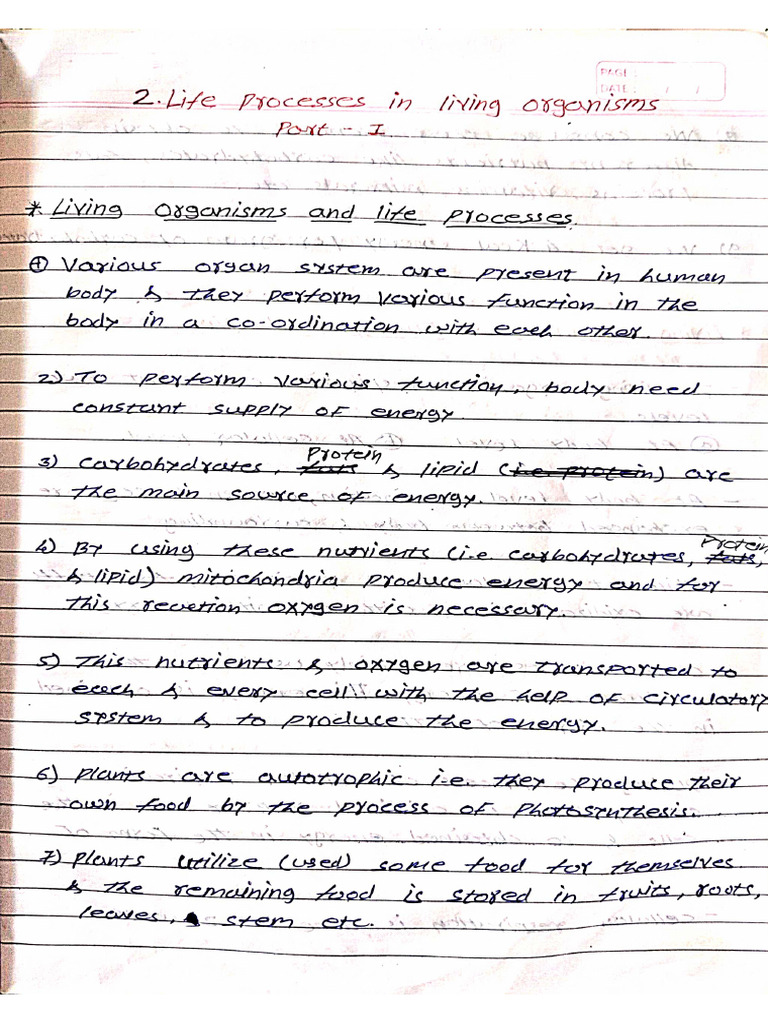 PAGE :
DATE : / /
2. Life Processes in living organisms
Part - I
* Living Organisms and life processes.
1) Various organ system are present in human
body & they perform various function in the
body in a co-ordination with each other.
2) To perform various function, body need
constant supply of energy
3) Carbohydrates, fats Protein & lipid (i.e protein) are
the main source of energy.
4) By using these nutrients (i.e carbohydrates, fats Protein,
& lipid) mitochondria produce energy and for
this reaction oxygen is necessary.
5) This nutrients & oxygen are transported to
each & every cell with the help of circulatory
system & to produce the energy.
6) Plants are autotrophic i.e. they produce their
own food by the process of Photosynthesis.
7) Plants utilize (used) some food for themselves
& the remaining food is stored in fruits, roots,
leaves, stem etc.